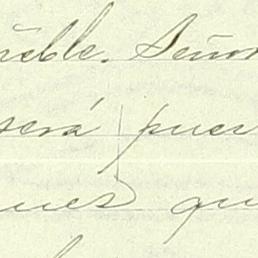 ñeble. Señor
será pues
ues qu